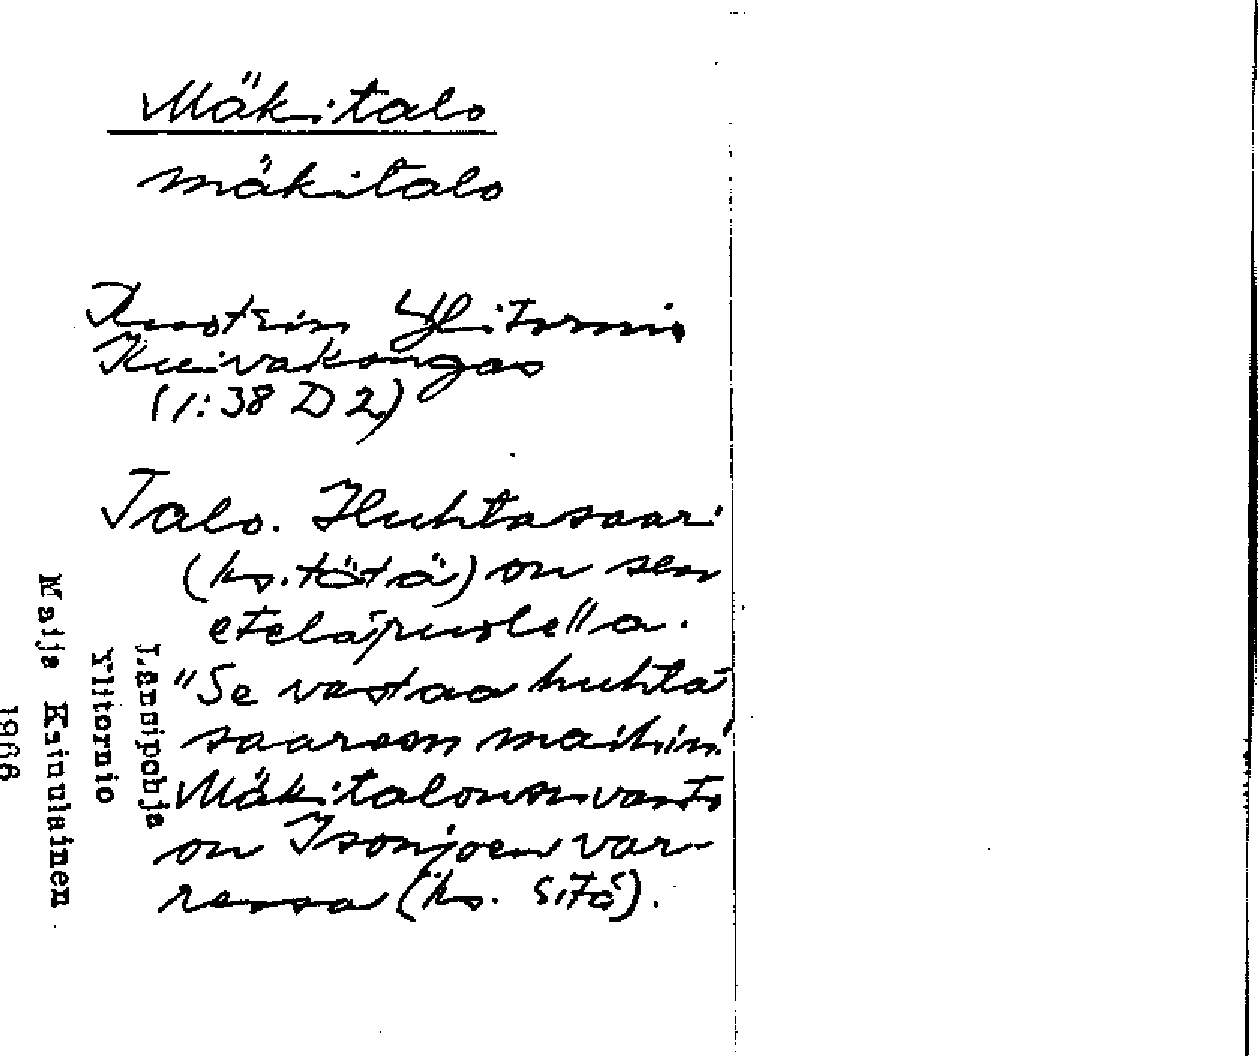 Mäkitalo
mäkitalo
Ruotsin Ylitornio
Kuivakangas
(1:38 D 2)
Talo. Huhtasaari
(ks. tätä) on sen
eteläpuolella.
"Se vastaa huhta
saareen maihin"
Mäkitalon
on Isonjoen var-
ressa (ks. sitä).
Länsipohja
Ylitornio
Maija Kainulainen
1968